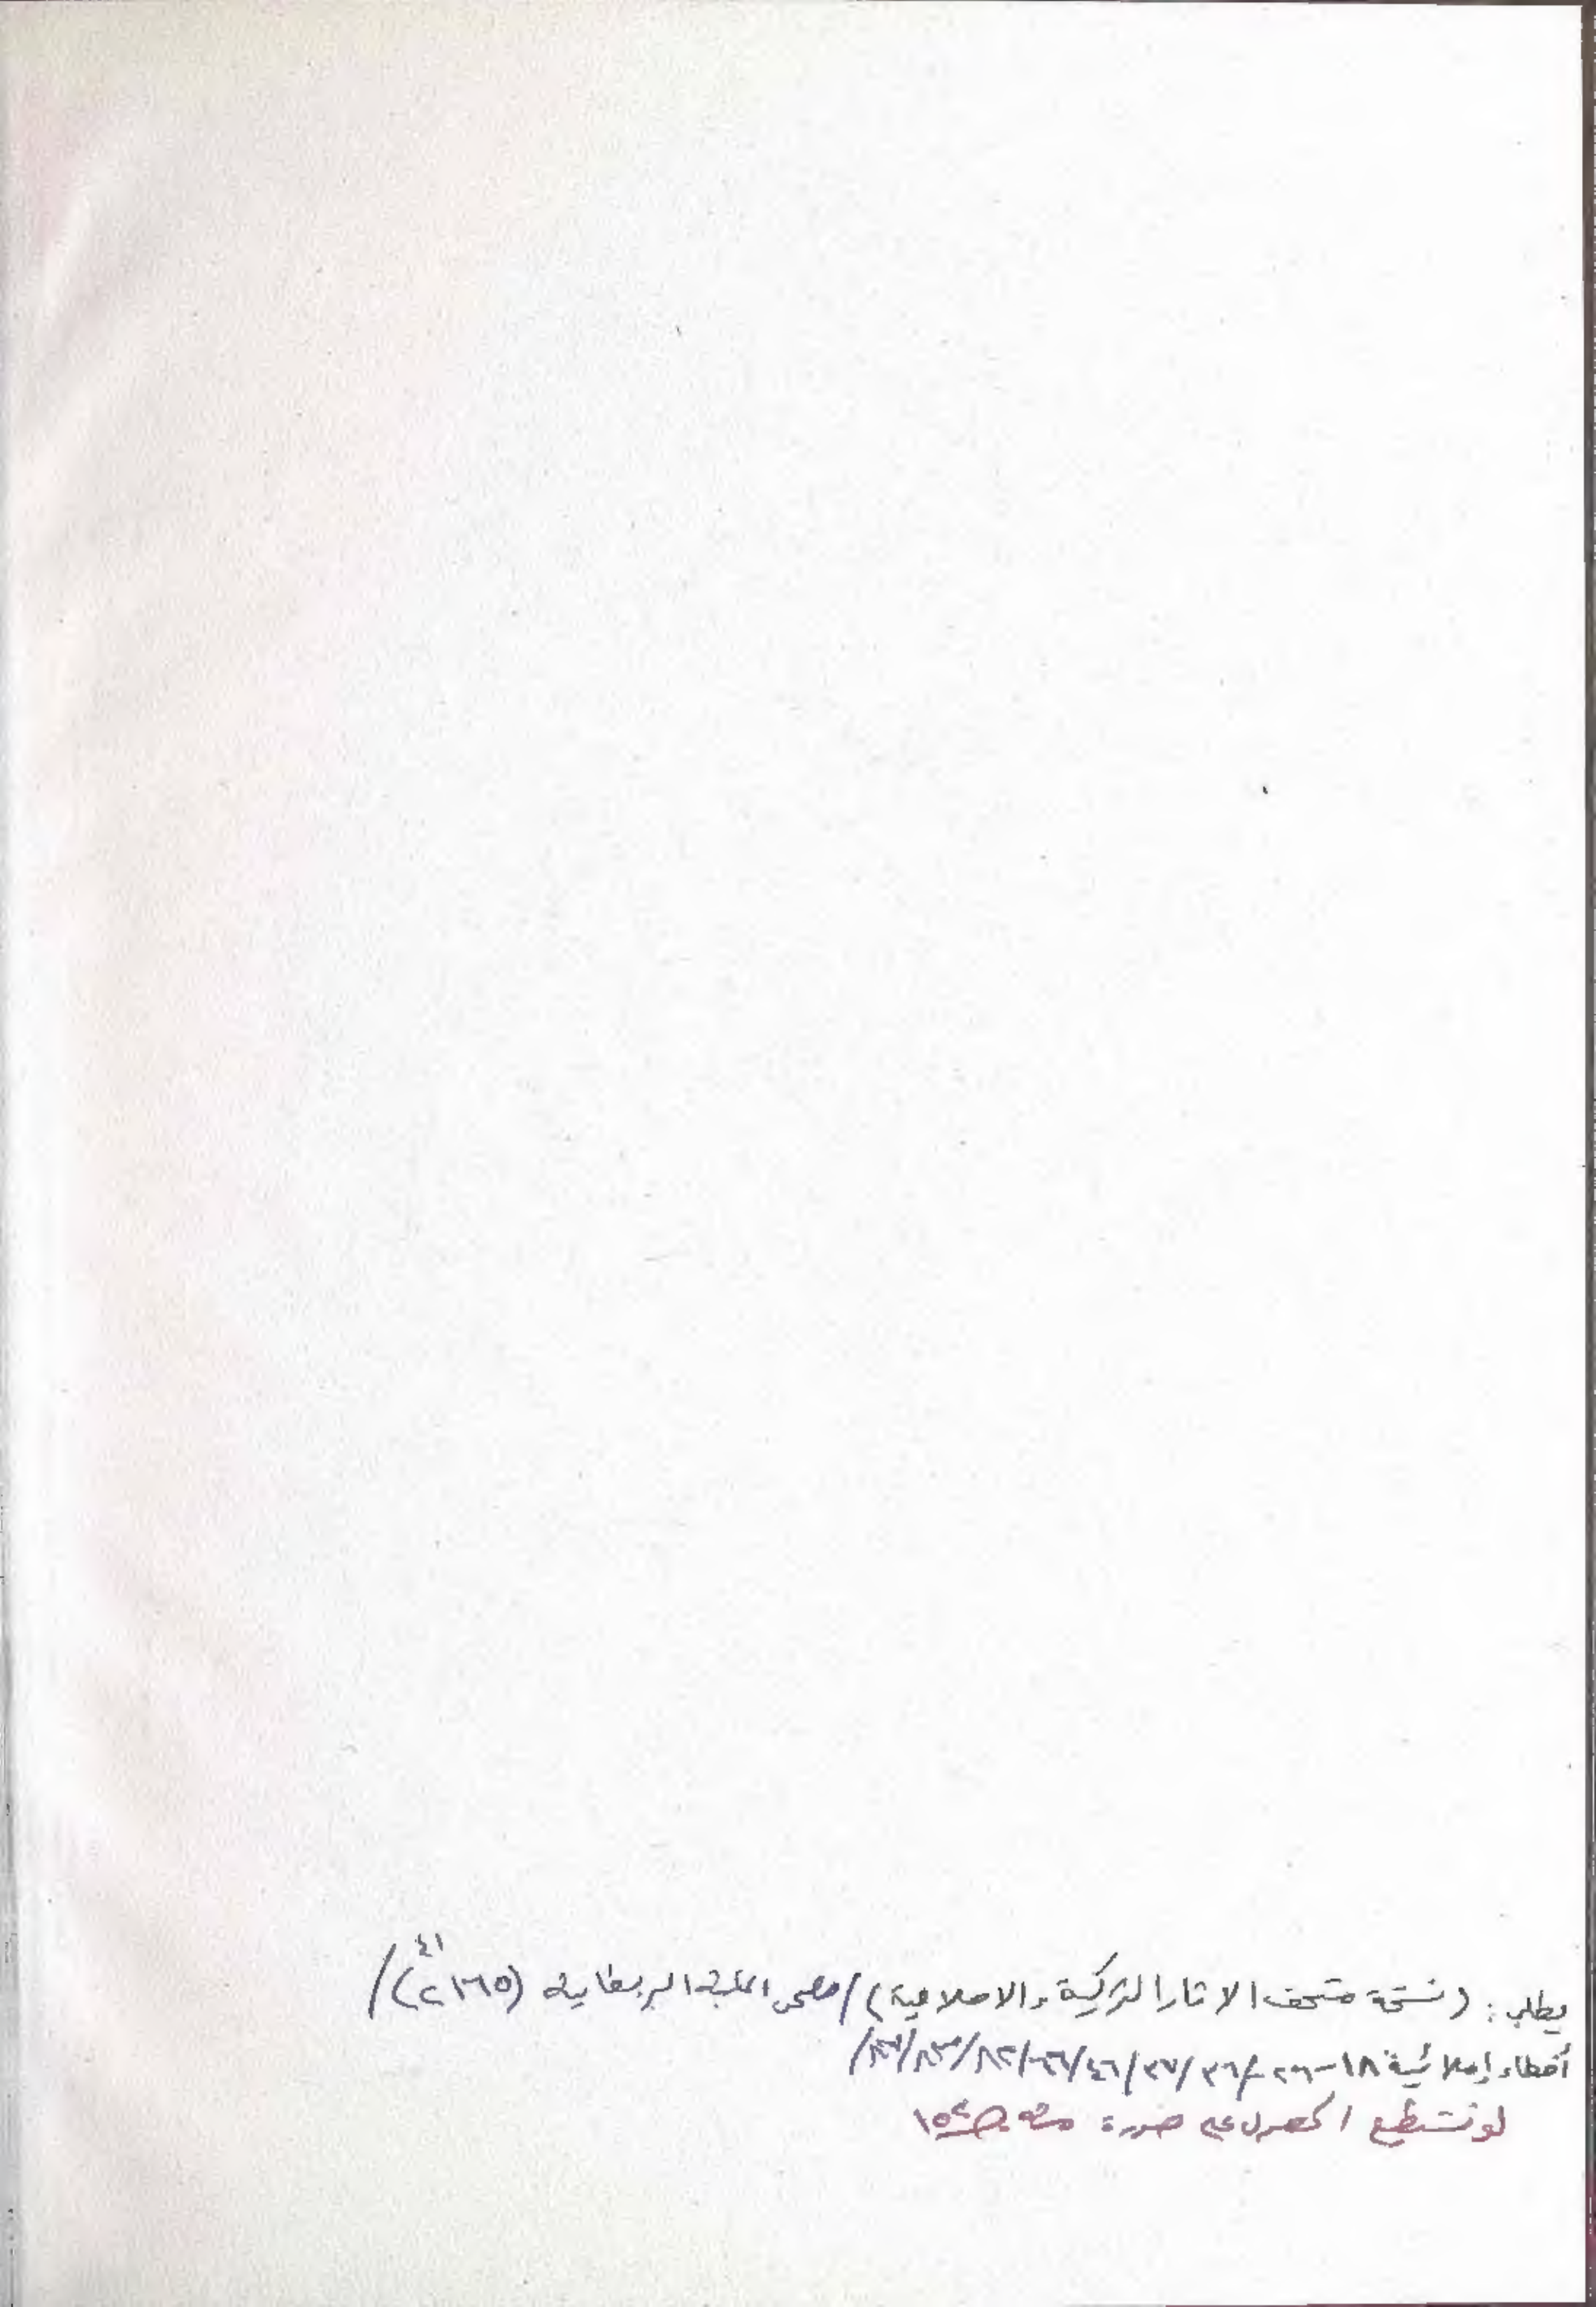 ٤١
يطلب : (نسخة متحف الاثار التركية والاسلامية) / مصحف المكتبة البريطانية (٢١٦٥) /
أخطاء إملائية ١٨-٢٦-/٣٦/٣٧/٤٦/٦٦/٨٢/٨٣/
لو نستطيع الحصول على صورة من ص١٥٢